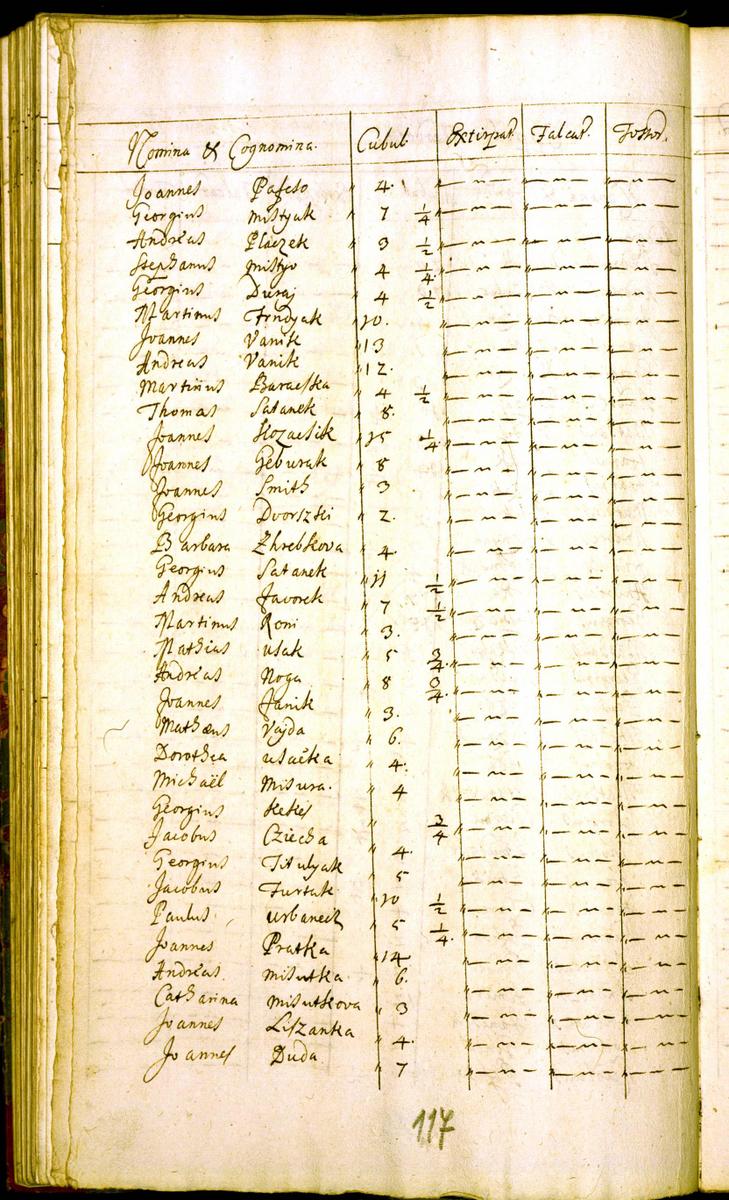 Nomina & Cognomina. Cubul. Extirpat. Falcat. Fossor.
Joannes Pafcso " 4. "— " — "— " — "— " —
Georgius Mistyak " 7 1/4 "— " — "— " — "— " —
Andreas Placzek " 3 1/2 "— " — "— " — "— " —
Stephanus Mistyo " 4 1/4 "— " — "— " — "— " —
Georgius Duraj " 4 1/2 "— " — "— " — "— " —
Martinus Trndyak " 10. "— " — "— " — "— " —
Joannes Vanik " 13 "— " — "— " — "— " —
Andreas Vanik " 12. "— " — "— " — "— " —
Martinus Baracska " 4 1/2 "— " — "— " — "— " —
Thomas Satanek " 8. "— " — "— " — "— " —
Joannes Kozacsik " 15 1/4 "— " — "— " — "— " —
Joannes Geburak " 8 "— " — "— " — "— " —
Joannes Smith " 3 "— " — "— " — "— " —
Georgius Dvorszki " 2. "— " — "— " — "— " —
Barbara Zhrebkova " 4. "— " — "— " — "— " —
Georgius Satanek " 11 1/2 "— " — "— " — "— " —
Andreas Javorek " 7 1/2 "— " — "— " — "— " —
Martinus Roni " 3. "— " — "— " — "— " —
Mathias usak " 5 3/4 "— " — "— " — "— " —
Andreas Noga " 8 3/4 "— " — "— " — "— " —
Joannes Janik " 3. "— " — "— " — "— " —
Mathæus Vajda " 6. "— " — "— " — "— " —
Dorothea usacka " 4. "— " — "— " — "— " —
Michaël Misura. " 4 "— " — "— " — "— " —
Georgius Kekes " 3/4 "— " — "— " — "— " —
Jacobus Cziecha " 4. "— " — "— " — "— " —
Georgius Titulyak " 5 "— " — "— " — "— " —
Jacobus Furtak " 10 1/2 "— " — "— " — "— " —
Paulus urbanech " 5 1/4 "— " — "— " — "— " —
Joannes Pratka " 14 "— " — "— " — "— " —
Andreas Misutka " 6. "— " — "— " — "— " —
Catharina Misutkova " 3 "— " — "— " — "— " —
Joannes Liszanka " 4. "— " — "— " — "— " —
Joannes Duda " 7 "— " — "— " — "— " —
117